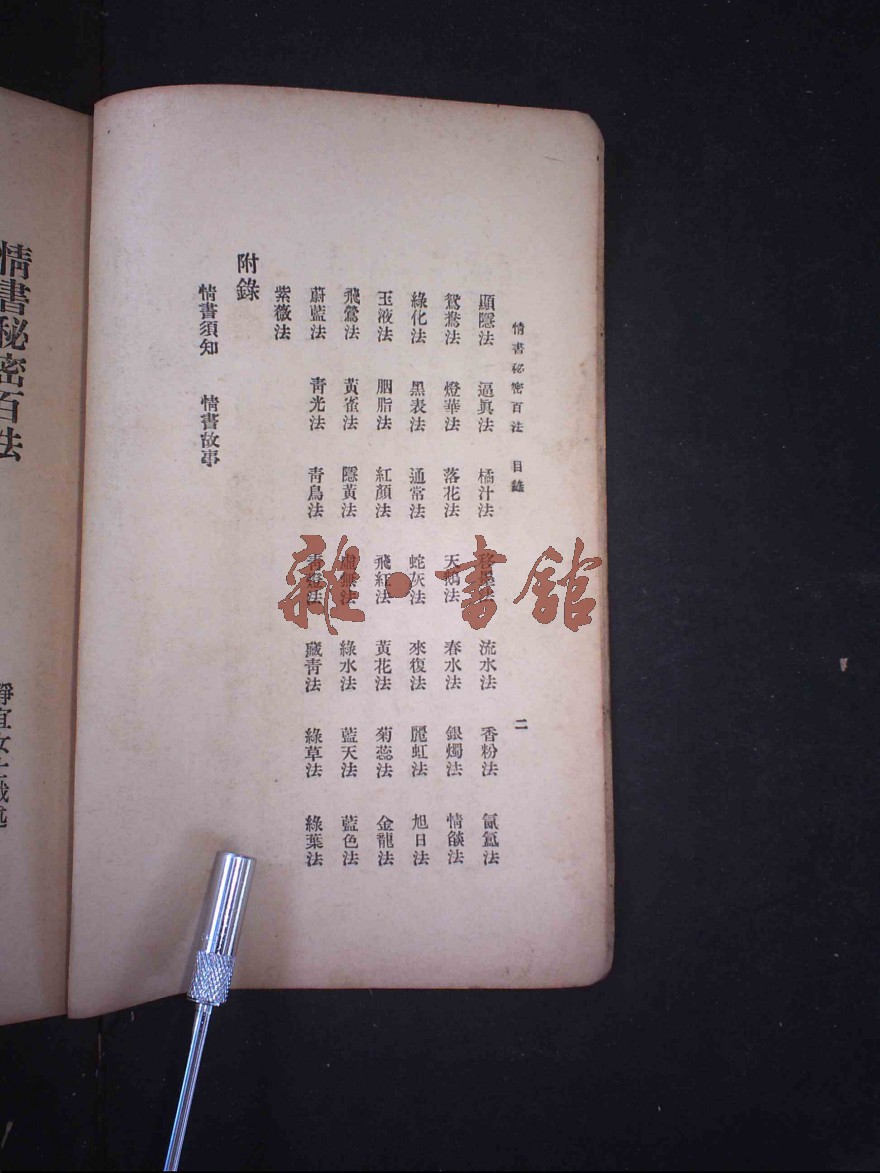 情書秘密百法　目錄　二
顯隱法　逼眞法　橘汁法　流水法　香粉法　氤氳法
鴛鴦法　燈華法　落花法　天鵝法　春水法　銀燭法　情燄法
綠化法　黑表法　通常法　蛇灰法　來復法　麗虹法　旭日法
玉液法　胭脂法　紅顏法　飛紅法　黃花法　菊蕊法　金龍法
飛鶯法　黃雀法　隱黃法　虛無法　綠水法　藍天法　藍色法
蔚藍法　靑光法　靑鳥法　靑燈法　藏靑法　綠草法　綠葉法
紫薇法
附錄
情書須知　情書故事
情書秘密百法
雜·書館